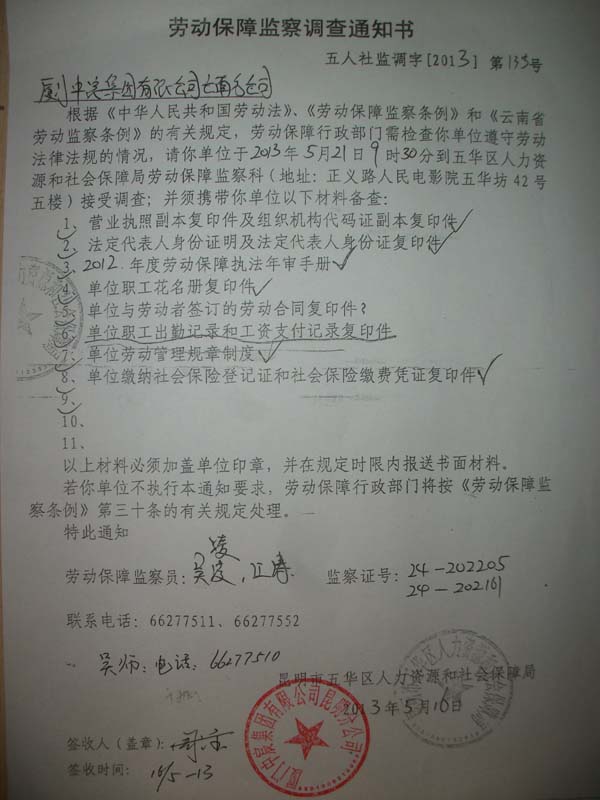 劳动保障监察调查通知书
五人社监调字[2013] 第135号
厦门中宸集团有限公司云南分公司
根据《中华人民共和国劳动法》、《劳动保障监察条例》和《云南省
劳动监察条例》的有关规定，劳动保障行政部门需检查你单位遵守劳动
法律法规的情况，请你单位于2013年5月21日9时30分到五华区人力资
源和社会保障局劳动保障监察科（地址：正义路人民电影院五华坊42号
五楼）接受调查；并须携带你单位以下材料备查：
1、营业执照副本复印件及组织机构代码证副本复印件✓
2、法定代表人身份证明及法定代表人身份证复印件✓
3、2012年度劳动保障执法年审手册✓
4、单位职工花名册复印件✓
5、单位与劳动者签订的劳动合同复印件？
6、单位职工出勤记录和工资支付记录复印件
7、单位劳动管理规章制度✓
8、单位缴纳社会保险登记证和社会保险缴费凭证复印件✓
9、
10、
11、
以上材料必须加盖单位印章，并在规定时限内报送书面材料。
若你单位不执行本通知要求，劳动保障行政部门将按《劳动保障监
察条例》第三十条的有关规定处理。
特此通知
劳动保障监察员：吴 监察证号：24-202205
24-202161
联系电话：66277511、66277552
吴师：电话：66277510
昆明市五华区人力资源和社会保障局
2013年5月16日
厦门中宸集团有限公司昆明分公司
签收人（盖章）：
签收时间：16/5-13